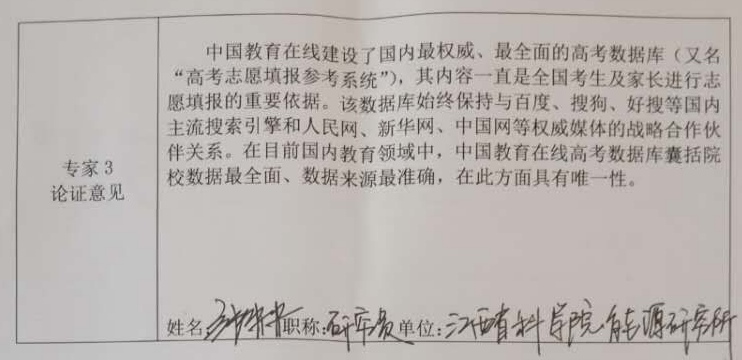 中国教育在线建设了国内最权威、最全面的高考数据库（又名
“高考志愿填报参考系统”），其内容一直是全国考生及家长进行志
愿填报的重要依据。该数据库始终保持与百度、搜狗、好搜等国内
主流搜索引擎和人民网、新华网、中国网等权威媒体的战略合作伙
伴关系。在目前国内教育领域中，中国教育在线高考数据库囊括院
校数据最全面、数据来源最准确，在此方面具有唯一性。
专家3
论证意见
姓名: 职称:研究员 单位:江西省科学院能源研究所